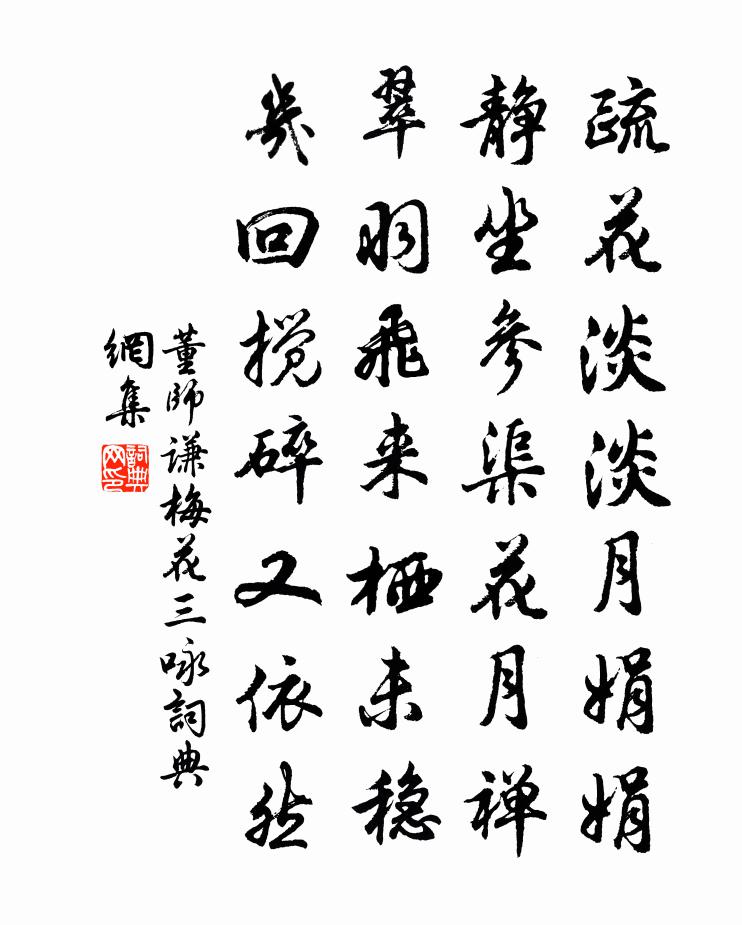 疏花淡淡月娟娟
静坐参渠花月禅
翠羽飛来栖未穏
幾回搅碎又依然
董師谦梅花三咏詞典
網集
詞典
网印